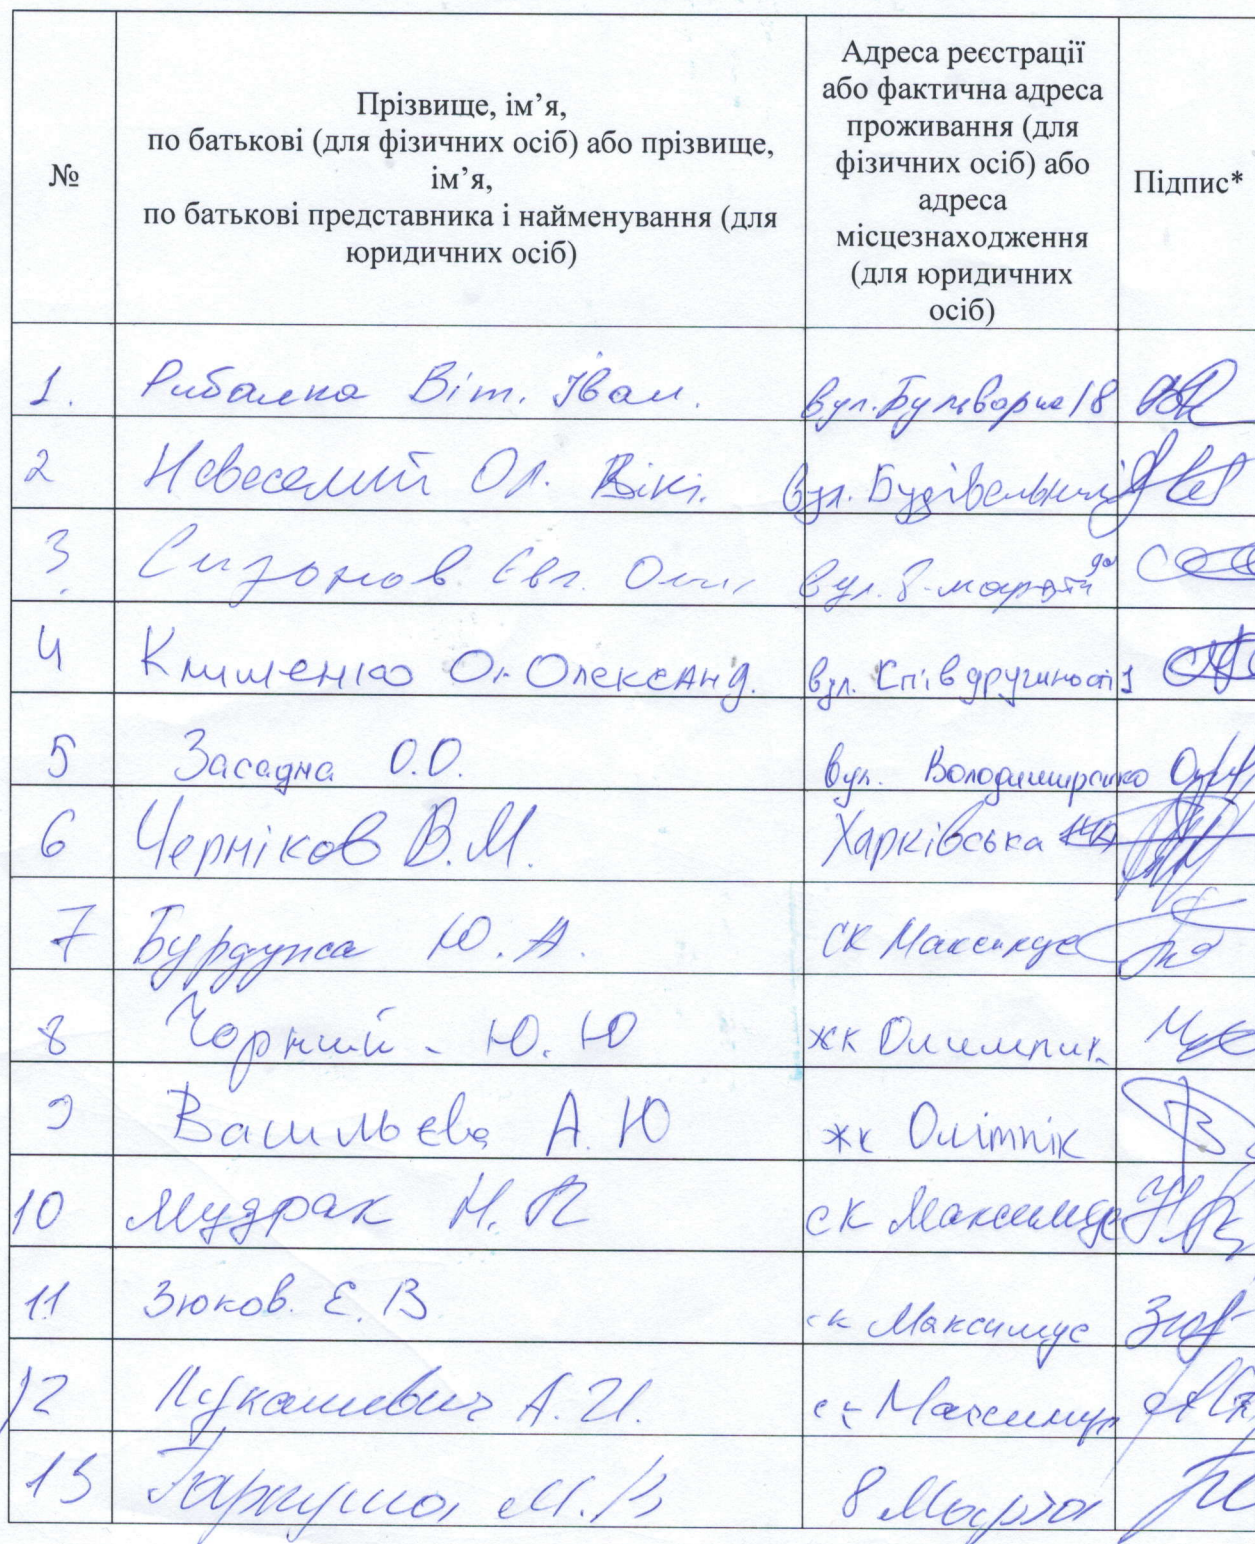 №
Прізвище, ім’я,
по батькові (для фізичних осіб) або прізвище,
ім’я,
по батькові представника і найменування (для
юридичних осіб)
Адреса реєстрації
або фактична адреса
проживання (для
фізичних осіб) або
адреса
місцезнаходження
(для юридичних
осіб)
Підпис*
1. Рибалка Віт. Іван. вул. Бульварна 18
2 Невеселий Ол. Вікт. вул. Будівельників
3. Сизонов Євг. вул. 8-марта
4 Клименко Ол Олександ. вул. Співдружності 1
5 Засадна О.О. вул.
6 Черніков В.М. Харківська
7 Ю.А. СК Максимус
8 Чорний - Ю.Ю жк Олимпик
9 Васильєва А.Ю жк Олімпік
10 Мудрак Н.П ск Максимус
11 Зюков. Е.В ск Максимус
12 Лукашевич А.И. ск Максимус
13 Гаркуша М.В 8 Марта